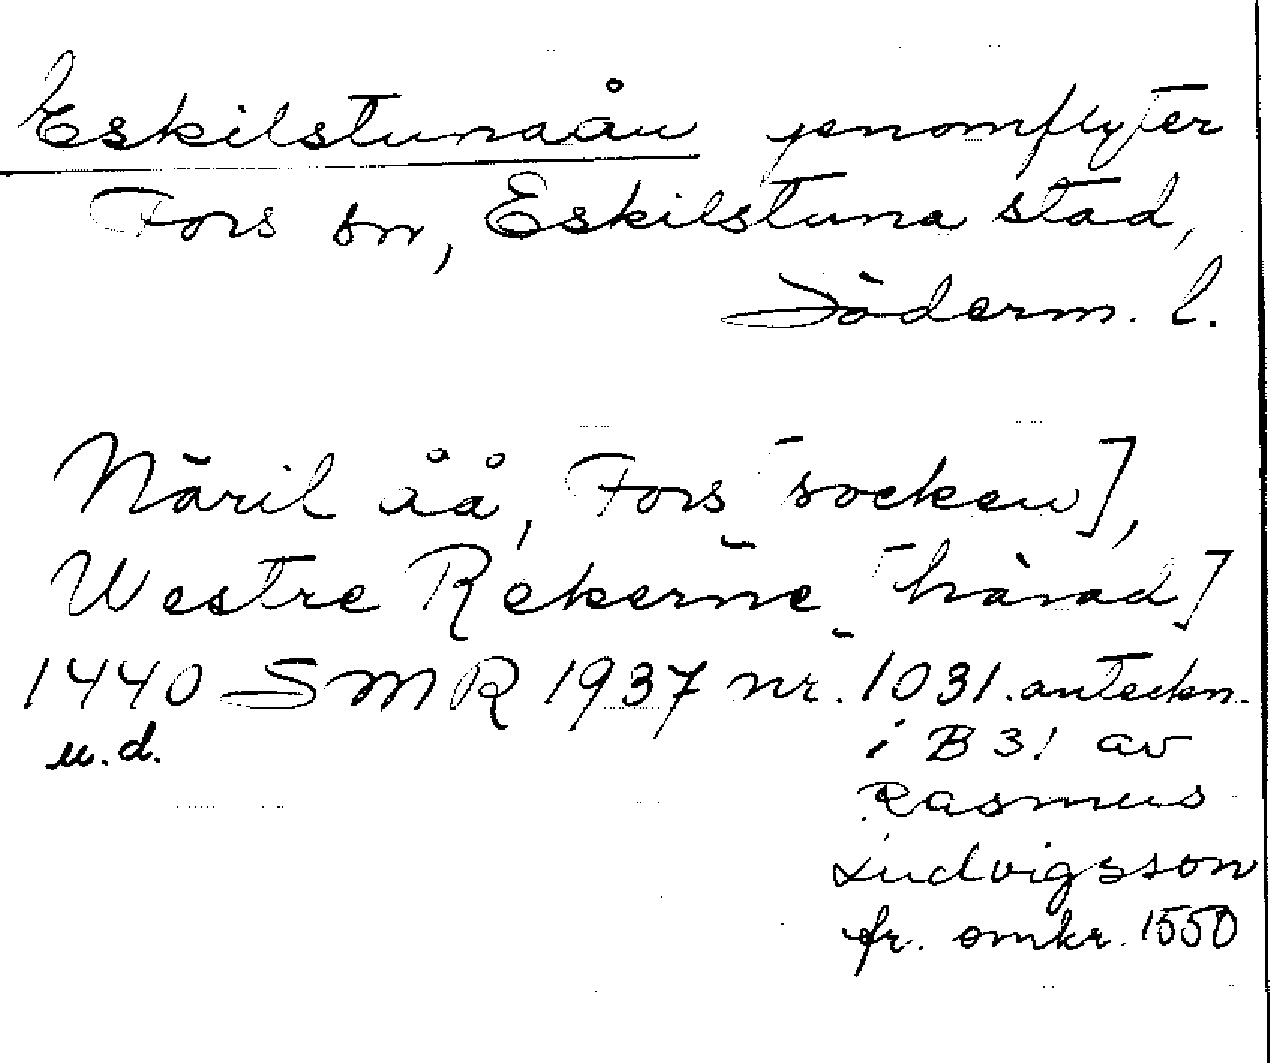 Eskilstunaån genomflyter
Fors sn, Eskilstuna stad,
Söderm. l.
Näril åå, Fors [socken],
Westre Rekerne [härad]
1440 SMR 1937 nr. 1031. anteckn.
u.d. i B 31 av
Rasmus
Ludvigsson
fr. omkr. 1550